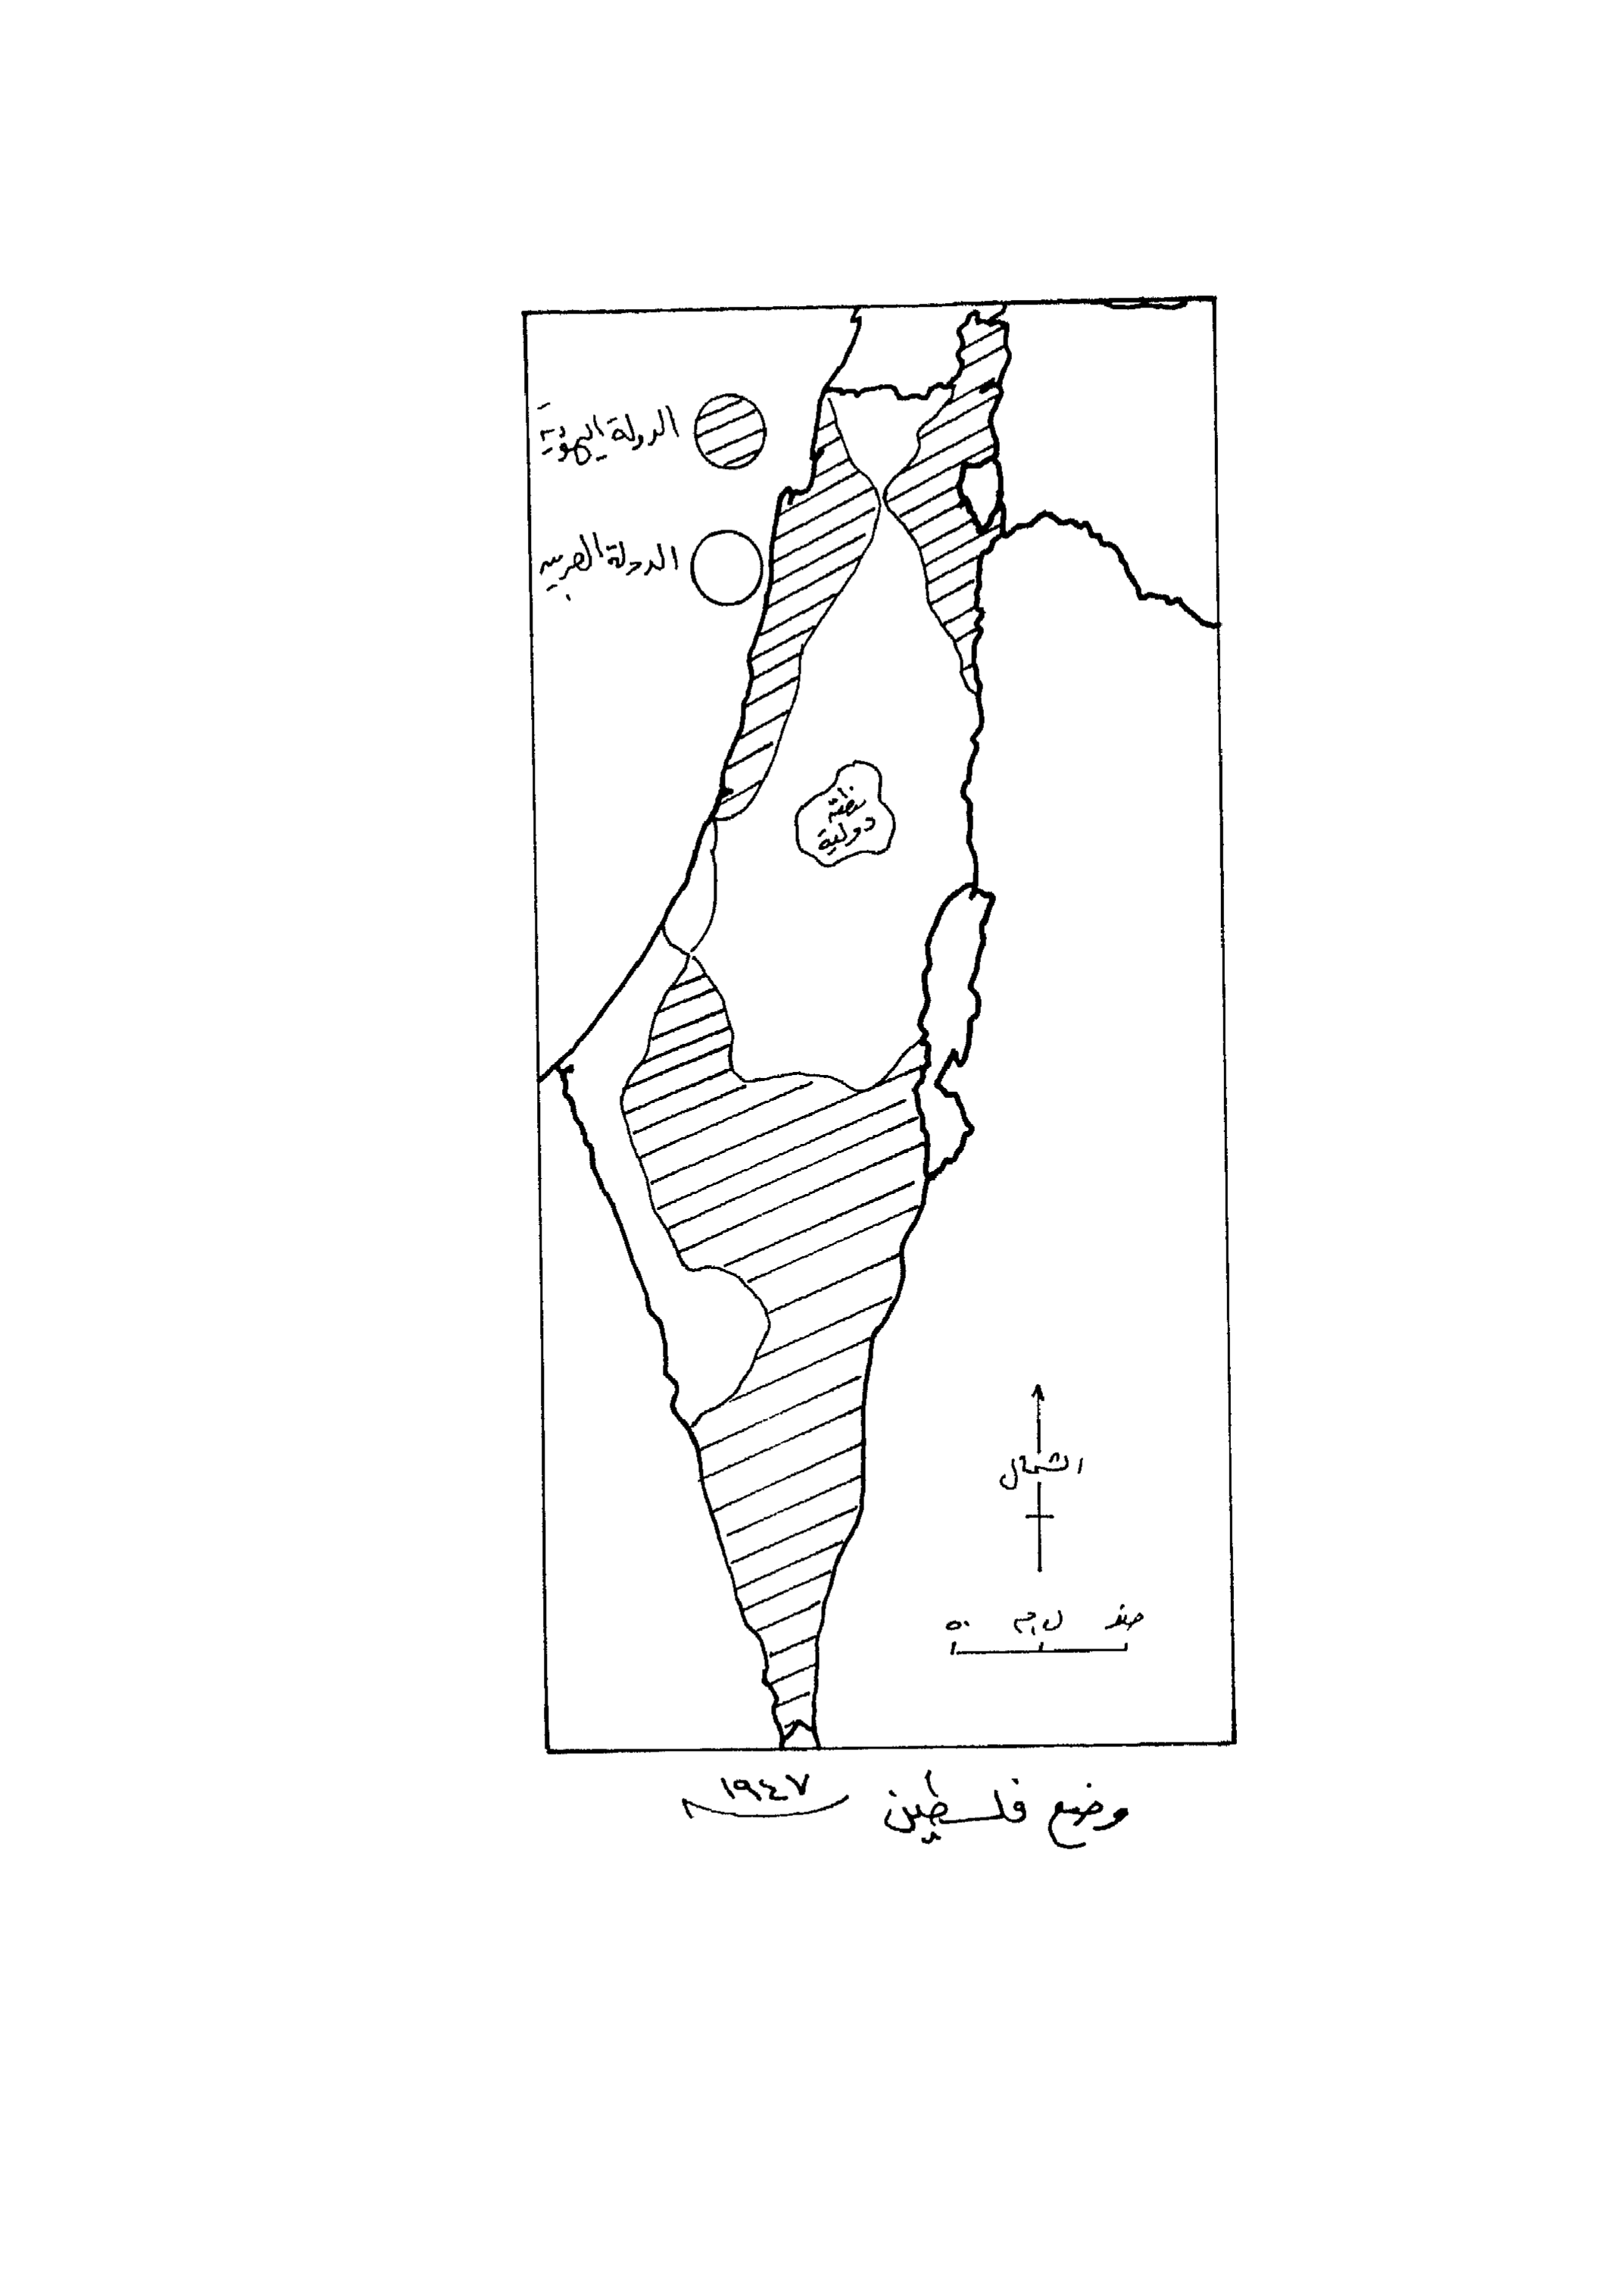 الدولة اليهودية
الدولة العربية
منطقة
دولية
الشمال
٥٠
صفر
وضع فلسطين ١٩٤٧